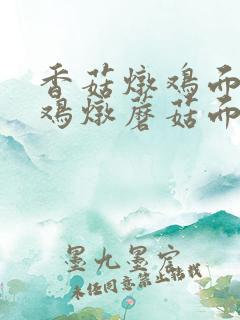 香菇燉鸡而
鸡燉蘑菇而
墨九墨宫
未经同意禁止转载